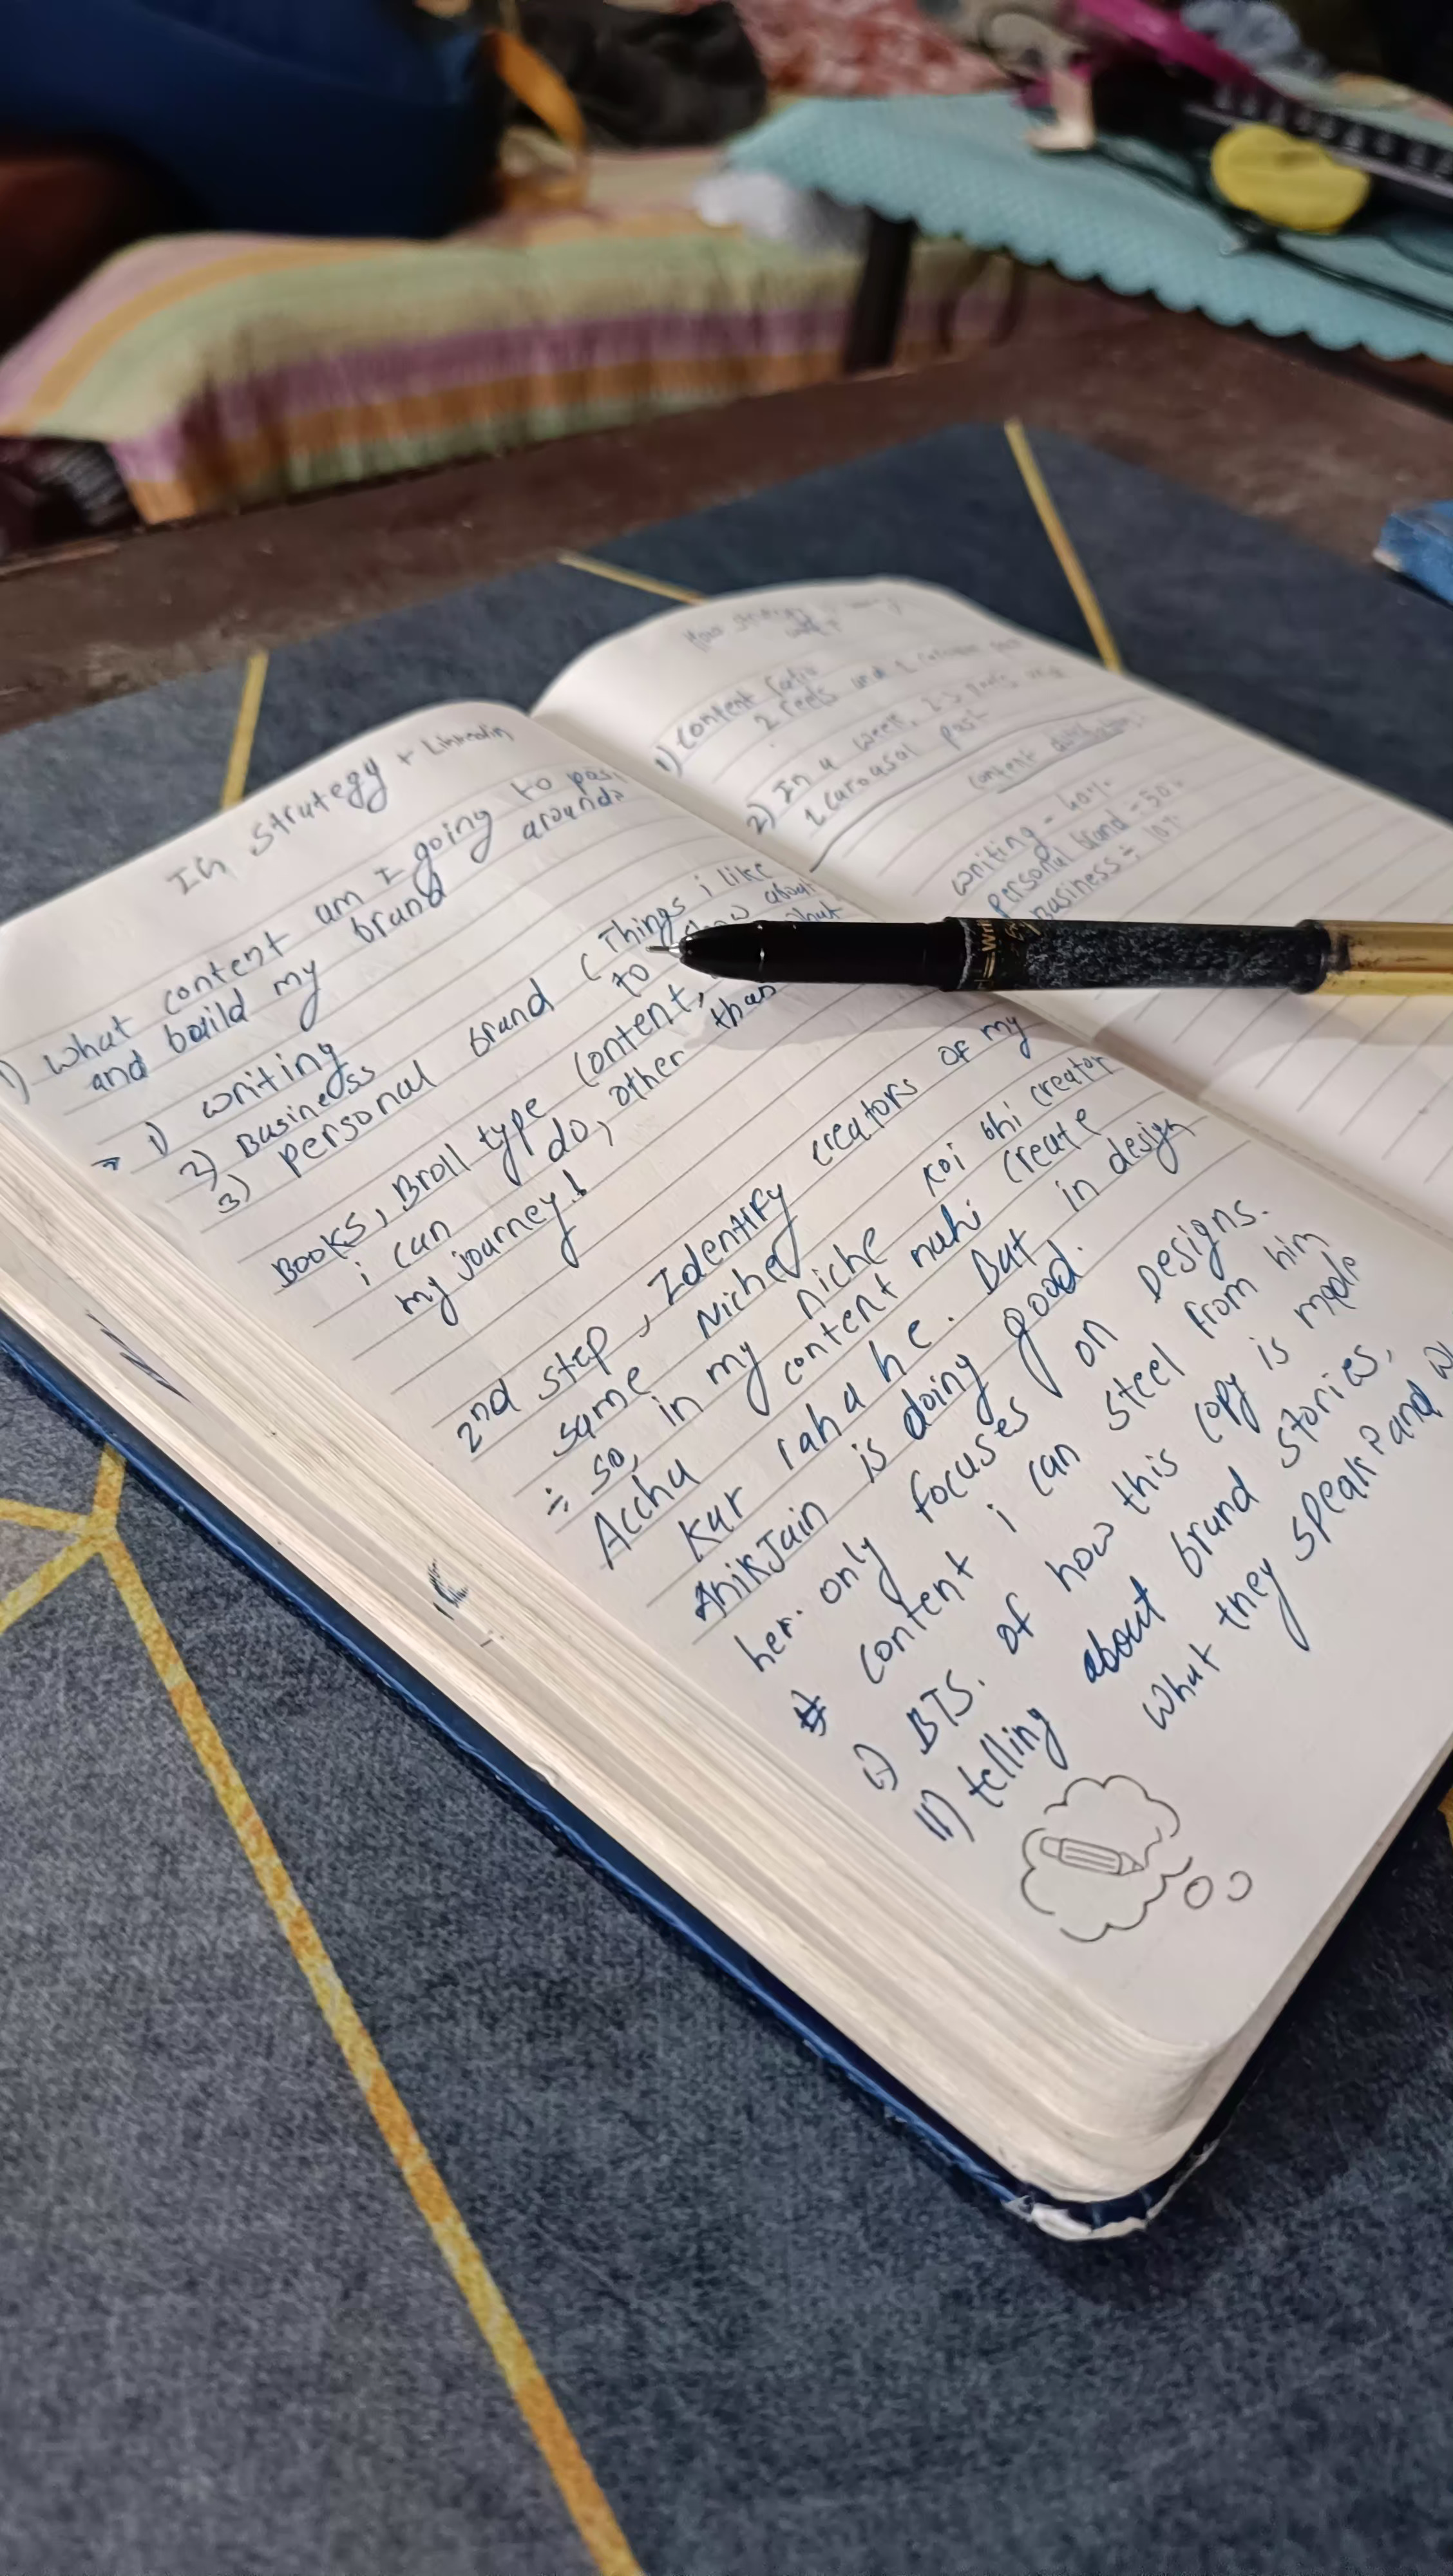 IG Strategy + Linkedin
1) What content am I going to post
and build my brand around?
→ 1) writing
2) Business
3) personal brand (Things i like
to about
Books, Broll type content, what
i can do, other than
my journey!
2nd step, Identify creators of my
same Niche
÷ so, in my niche koi bhi creator
Accha content nahi create
kar raha he. But in design
AnikJain is doing good.
her. only focuses on Designs.
# content i can steel from him
i) BTS. of how this copy is made
ii) telling about brand stories,
what they speak and
1) Content ratio
2 reels and 1
2) In a week, 2-3
1 carousal post
content
writing - 40%
personal brand - 50%
Business = 10%